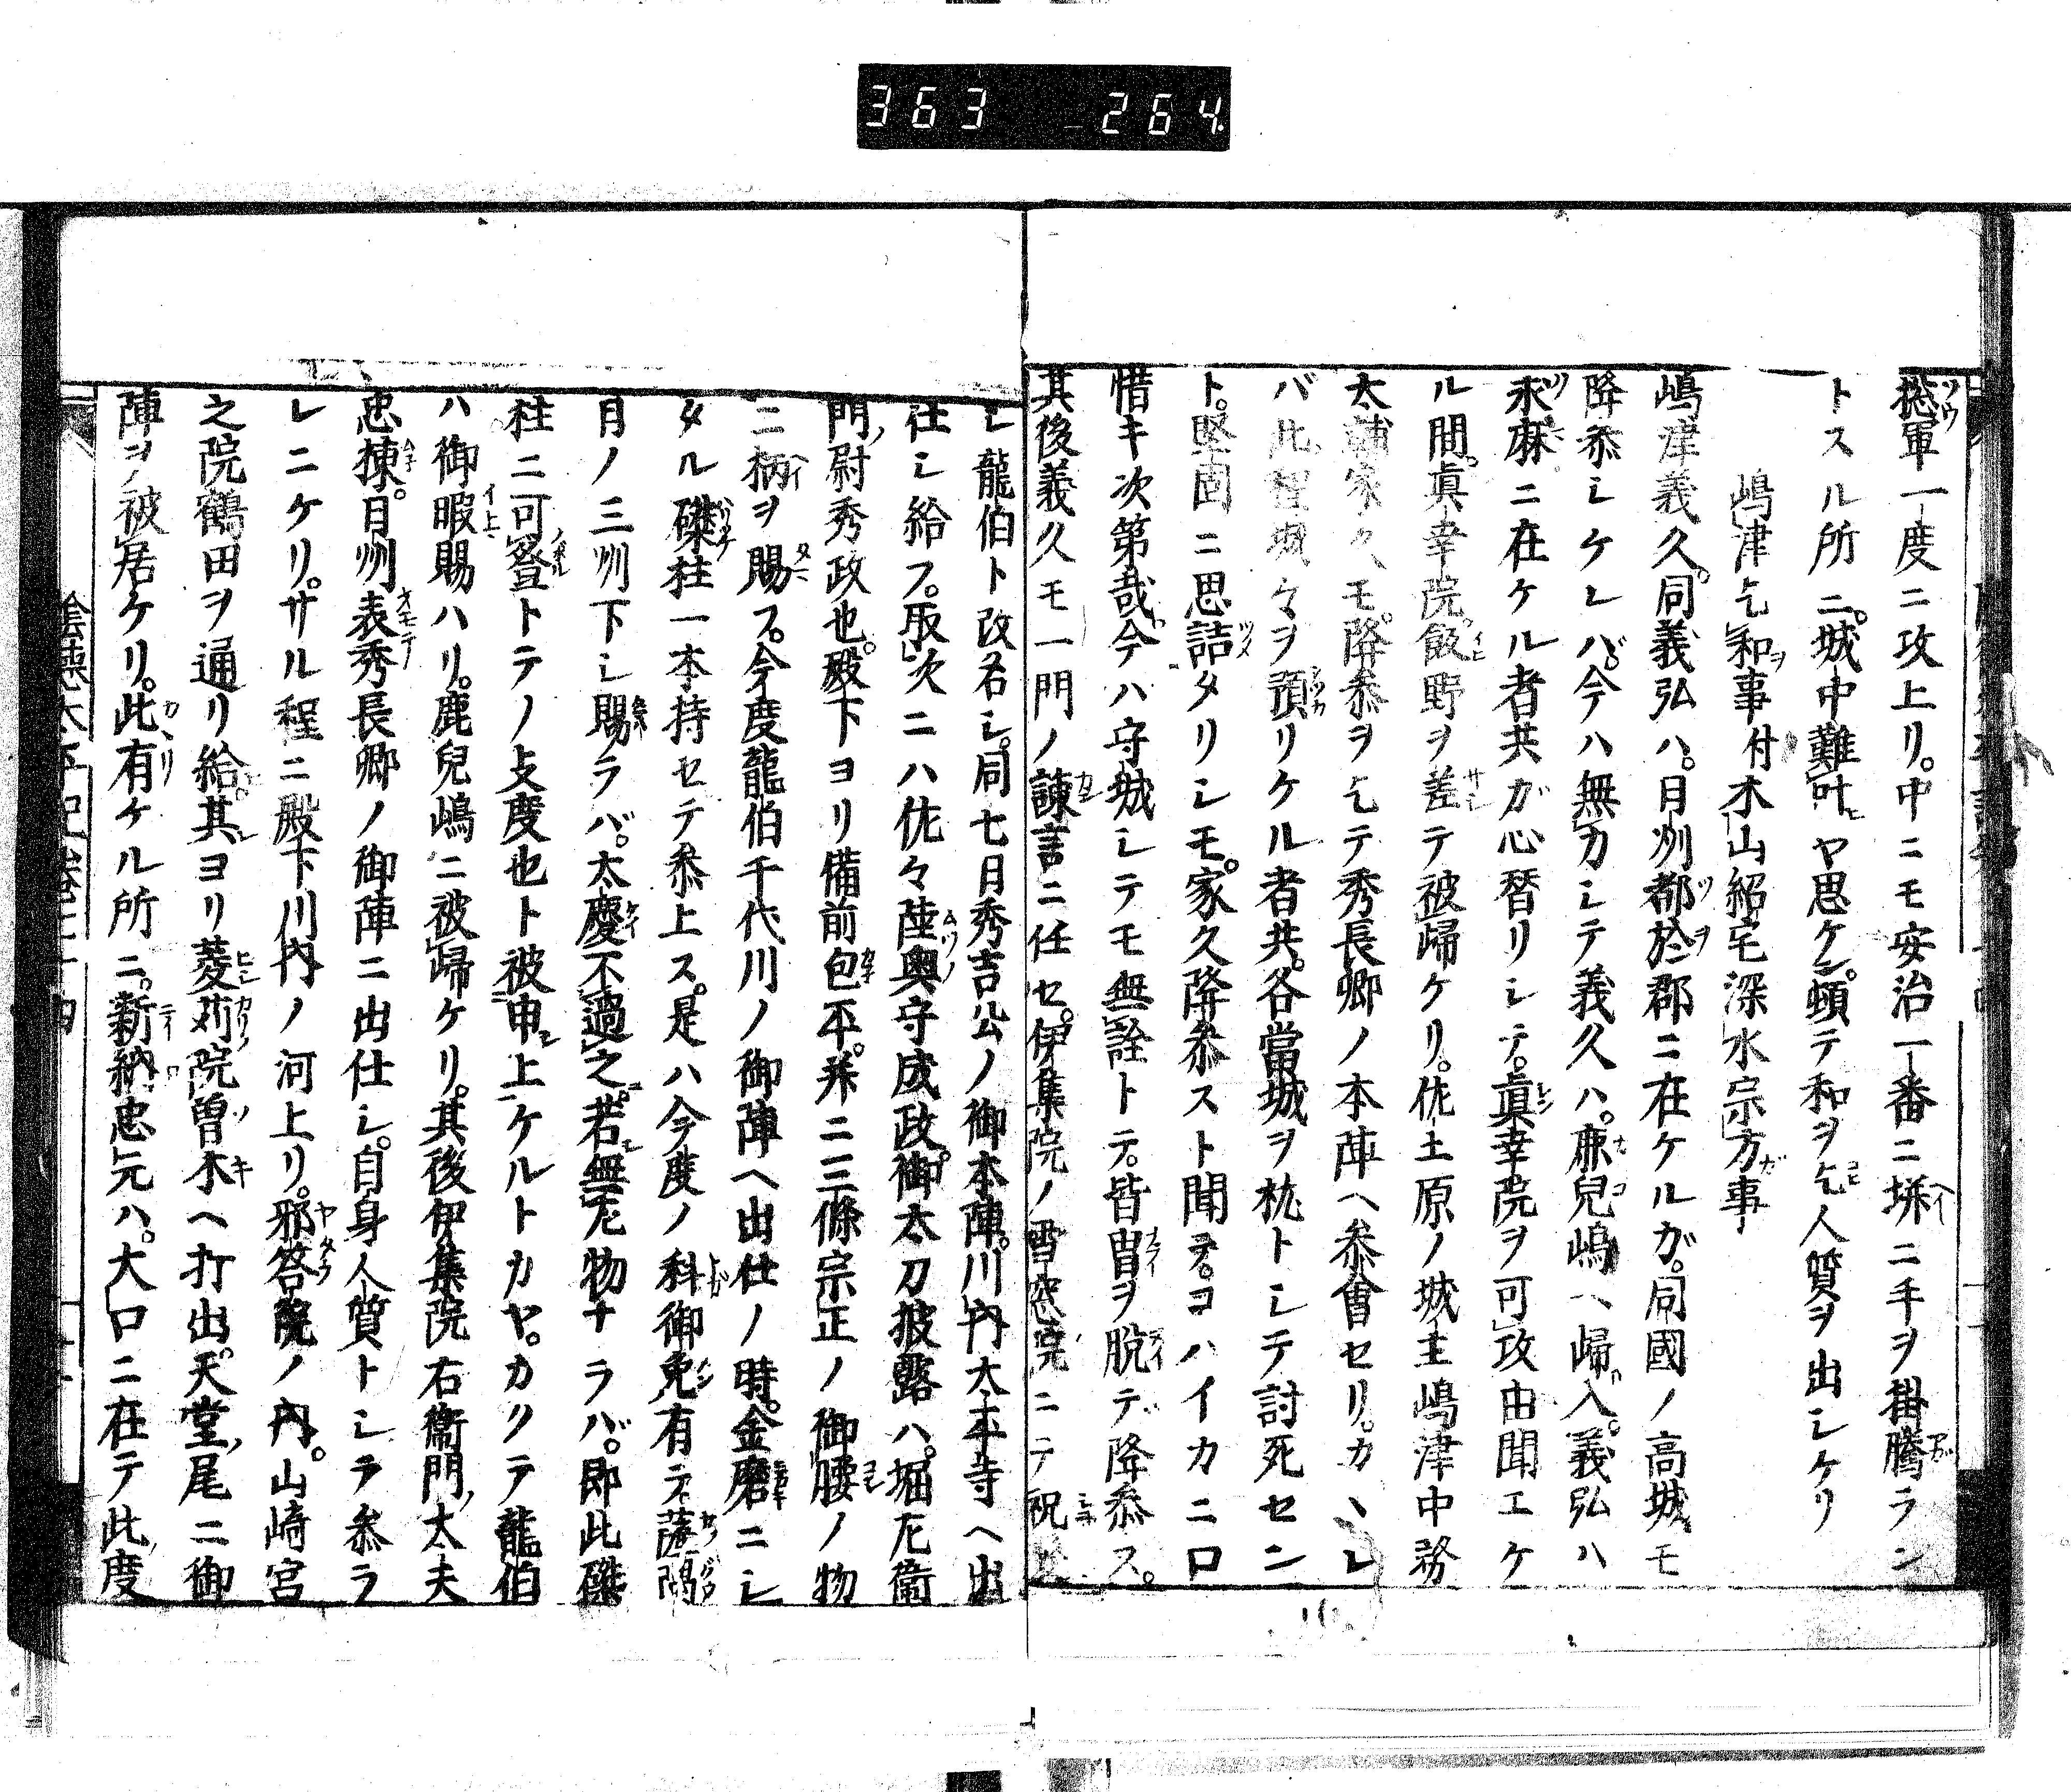 363 264
捴軍一度ニ攻上リ。中ニモ安治一番ニ塀ニ手ヲ掛騰ラン
トスル所ニ。城中難叶ヤ思ケン。頓テ和ヲ乞人質ヲ出シケリ
嶋津乞和事付木山紹宅深水宗方事
嶋津義久。同義弘ハ。日州都於郡ニ在ケルガ。同國ノ高城モ
降参シケレバ。今ハ無力シテ義久ハ。鹿兒嶋ヘ歸入。義弘ハ
ニ在ケル者共ガ心替リシテ。眞幸院ヲ可攻由聞エケ
ル間。眞幸院。飯野ヲ差テ被歸ケリ。佐土原ノ城主嶋津中務
太輔家久モ。降参ヲ乞テ秀長卿ノ本陣ヘ参會セリ。カヽレ
バ此程城々ヲ預リケル者共。各當城ヲ枕トシテ討死セン
ト。堅固ニ思詰タリシモ。家久降参スト聞テ。コハイカニ口
惜キ次第哉。今ハ守城シテモ無詮トテ。皆冑ヲ脱デ降参ス。
其後義久モ一門ノ諫言ニ任セ。伊集院ノ雪窓院ニテ祝
シ龍伯ト改名シ。同七日秀吉公ノ御本陣。川内太平寺ヘ出
仕シ給フ。取次ニハ佐々陸奥守成政。御太刀披露ハ。堀左衛
門尉秀政也。殿下ヨリ備前包平。并ニ三條宗正ノ御腰ノ物
二柄ヲ賜フ。今度龍伯千代川ノ御陣ヘ出仕ノ時。金磨ニシ
タル磔柱一本持セテ参上ス。是ハ今度ノ科御免有テ。薩隅
日ノ三州下シ賜ラバ。太慶不過之。若無左物ナラバ。即此磔
柱ニ可登トテノ支度也ト被申上ケルトカヤ。カクテ龍伯
ハ御暇賜ハリ。鹿兒嶋ニ被歸ケリ。其後伊集院右衛門太夫
忠棟。日州表秀長卿ノ御陣ニ出仕シ。自身人質トシラ参ラ
レニケリ。サル程ニ殿下川内ノ河上リ。邪答院ノ内。山崎宮
之院鶴田ヲ通リ給。其ヨリ菱苅院曽木ヘ打出。天堂尾ニ御
陣ヲ被居ケリ。此有ケル所ニ。新納忠元ハ。大口ニ在テ此度